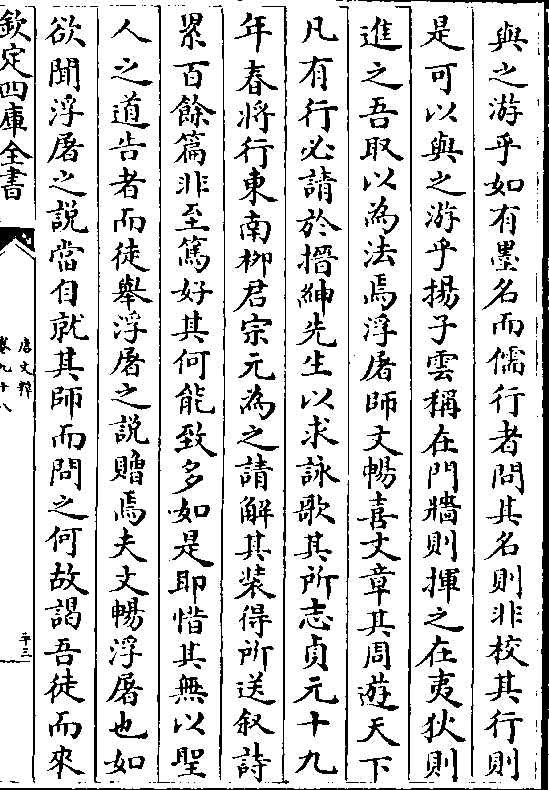 與之游乎如有墨名而儒行者問其名則非校其行則
是可以與之游乎揚子雲稱在門牆則揮之在夷狄則
進之吾取以為法焉浮屠師文暢喜文章其周遊天下
凡有行必請於搢紳先生以求詠歌其所志貞元十九
年春將行東南柳君宗元為之請解其裝得所送叙詩
累百餘篇非至篤好其何能致多如是耶惜其無以聖
人之道告者而徒舉浮屠之說贈焉夫文暢浮屠也如
欲聞浮屠之說當自就其師而問之何故謁吾徒而來
欽定四庫全書
唐文粹
卷九十八
二十三